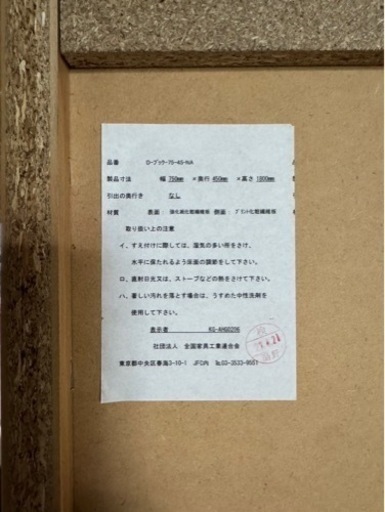 品番 ロ-ブック-75-45-NA
製品寸法 幅 750mm ×奥行 450mm ×高さ 1800mm
引出の奥行き なし
材質 表面: 強化紙化粧繊維板 側面: プリント化粧繊維板
取り扱い上の注意
イ、すえ付けに際しては、湿気の多い所をさけ、
水平に保たれるよう床面の調節をして下さい。
ロ、直射日光又は、ストーブなどの熱をさけて下さい。
ハ、著しい汚れを落とす場合は、うすめた中性洗剤を
使用して下さい。
表示者 KG-AHG0206
社団法人 全国家具工業連合会
東京都中央区春海3-10-1 JFC内 ℡03-3533-9551